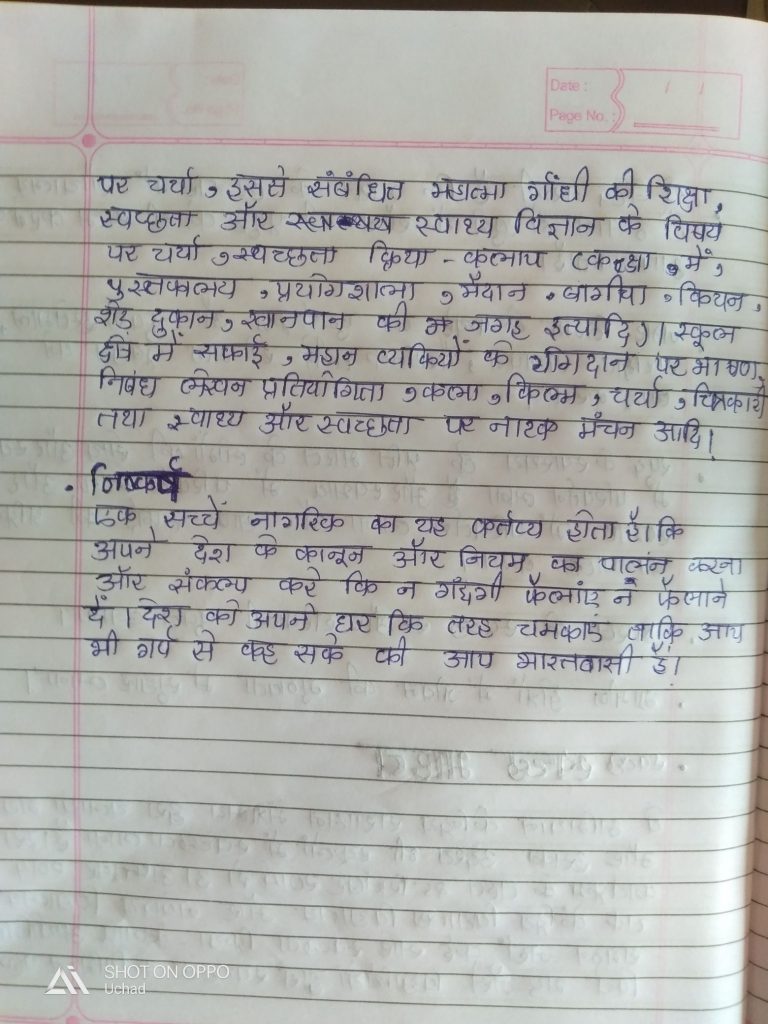 Date : / /
Page No. :
पर चर्चा, इससे संबंधित महात्मा गाँधी की शिक्षा,
स्वच्छता और स्वाथ्य विज्ञान के विषय
पर चर्चा, स्वच्छता क्रिया - कलाप (कक्षा, में,
पुस्तकालय, प्रयोगशाला, मैदान, बागीचा, किचन,
शेड दुकान, खानपान की जगह इत्यादि)। स्कूल
क्षेत्र में सफाई, महान व्यकियों के योगदान पर भाषण,
निबंध लेखन प्रतियोगिता, कला, फिल्म, चर्चा, चित्रकारी
तथा स्वाथ्य और स्वच्छता पर नाटक मंचन आदि।
• निष्कर्ष
एक सच्चें नागरिक का यह कर्तव्य होता है। कि
अपने देश के कानून और नियम का पालंन करना
और संकल्प करे कि न गंदगी फैलांए न फैलाने
दें। देश को अपने घर कि तरह चमकाएं ताकि आप
भी गर्व से कह सके की आप भारतवासी हैं।
SHOT ON OPPO
Uchad